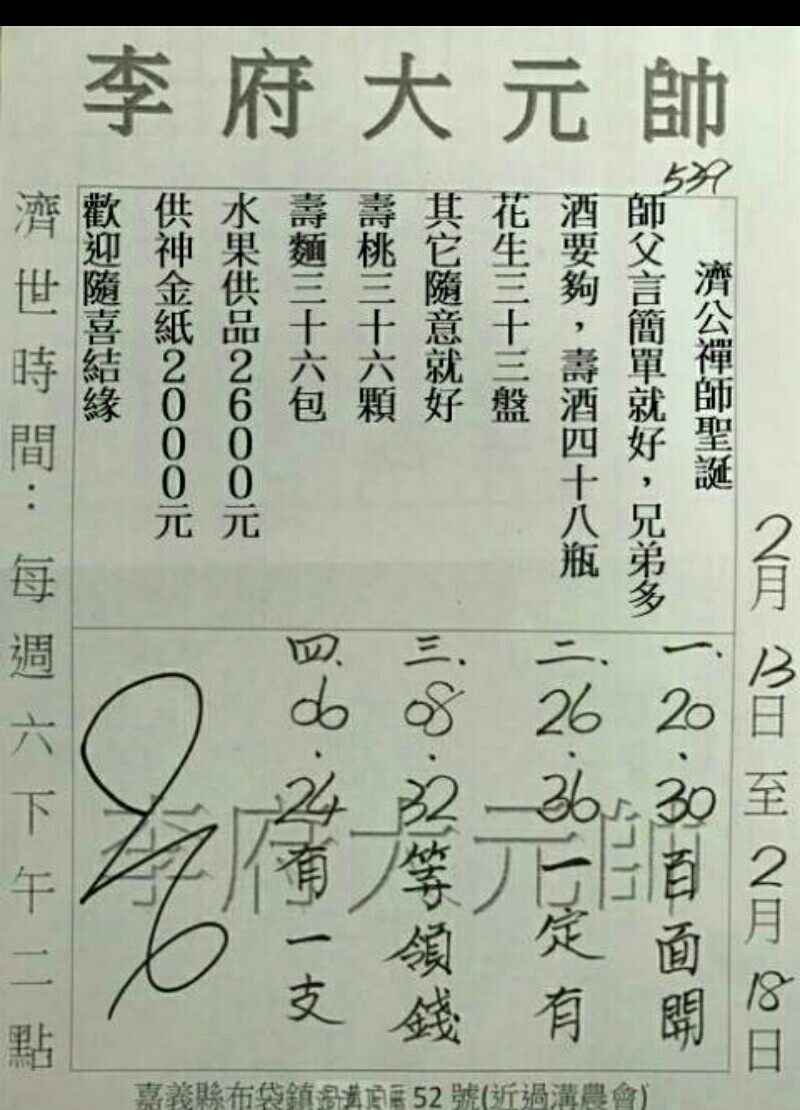 李府大元帥
539
濟公禪師聖誕
師父言簡單就好，兄弟多
酒要夠，壽酒四十八瓶
花生三十三盤
其它隨意就好
壽桃三十六顆
壽麵三十六包
水果供品2600元
供神金紙2000元
歡迎隨喜結緣
2月13日至2月18日
一.20.30百面開
二.26.36一定有
三.08.32等領錢
四.06.24有一支
李府大元帥
濟世時間：每週六下午二點
嘉義縣布袋鎮 52 號(近過溝農會)